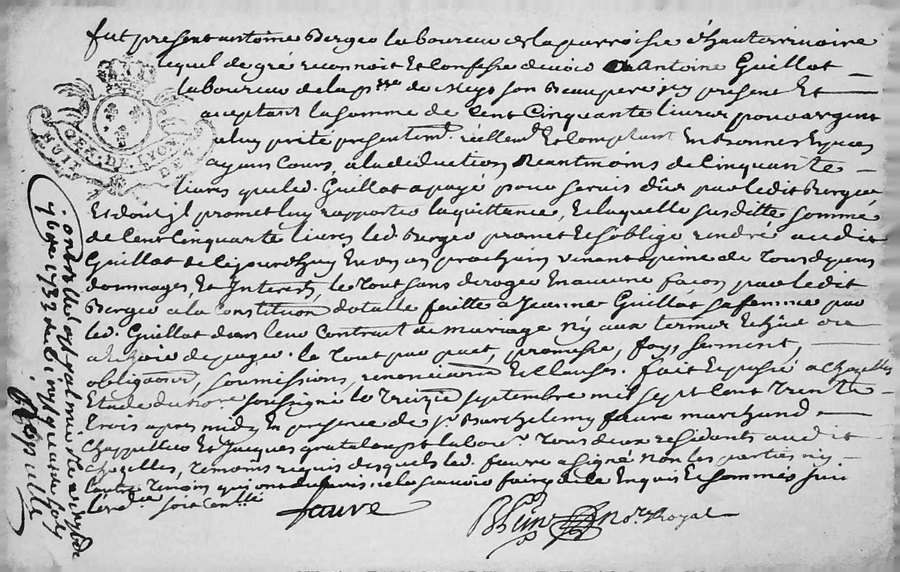 fut present antoine Berger laboureur de la parroisse d'hauterivoire
lequel de gré reconnoit Et confesse devoir a Antoine Guillot
laboureur de la psse de Meys son Beaupere icy present Et
acceptant la somme de Cent Cinquante livres pour argent
a luy preté presentemt. réellemt. Et comptant En bonnes Especes
ayans Cours, a la deduction Neantmoins de Cinquante
livres que led. Guillot a payé pour servis dûs par ledit Berger
Et dont jl promet luy rapporter la quittance, Et laquelle susditte somme
de Cent Cinquante livres led. Berger promet Et s'oblige rendre audit
Guillot de Cejourdhuy En un an prochain venant a peine de tous depens
dommages, Et Interests, le tout sans deroger En aucune façon par ledit
Berger a la Constitution dotalle faitte a Jeanne Guillot sa femme par
led. Guillot dans leur Contrat de mariage ny aux termes
de payer. le tout par pact, promesse, foy, serment,
obligaons, soumissions, renonciaons Et Clauses. fait Et passé a Chazelles
Etude du nore soussigné le treize septembre mil sept Cent trente
trois apres midy En presence de sr. Barthelemy faure marchand
Chappellier Et Jacques grataloup labour. tous deux residants audit
Chazelles, temoins requis desquels led. faure a signé non les parties ny
l'autre temoin qui ont declaré ne le sçavoir faire de ce Enquis Et sommés
soit Contllé
faure
Nore Royal
GEN. DE LYON
HUIT DEN.
Controllé
1733